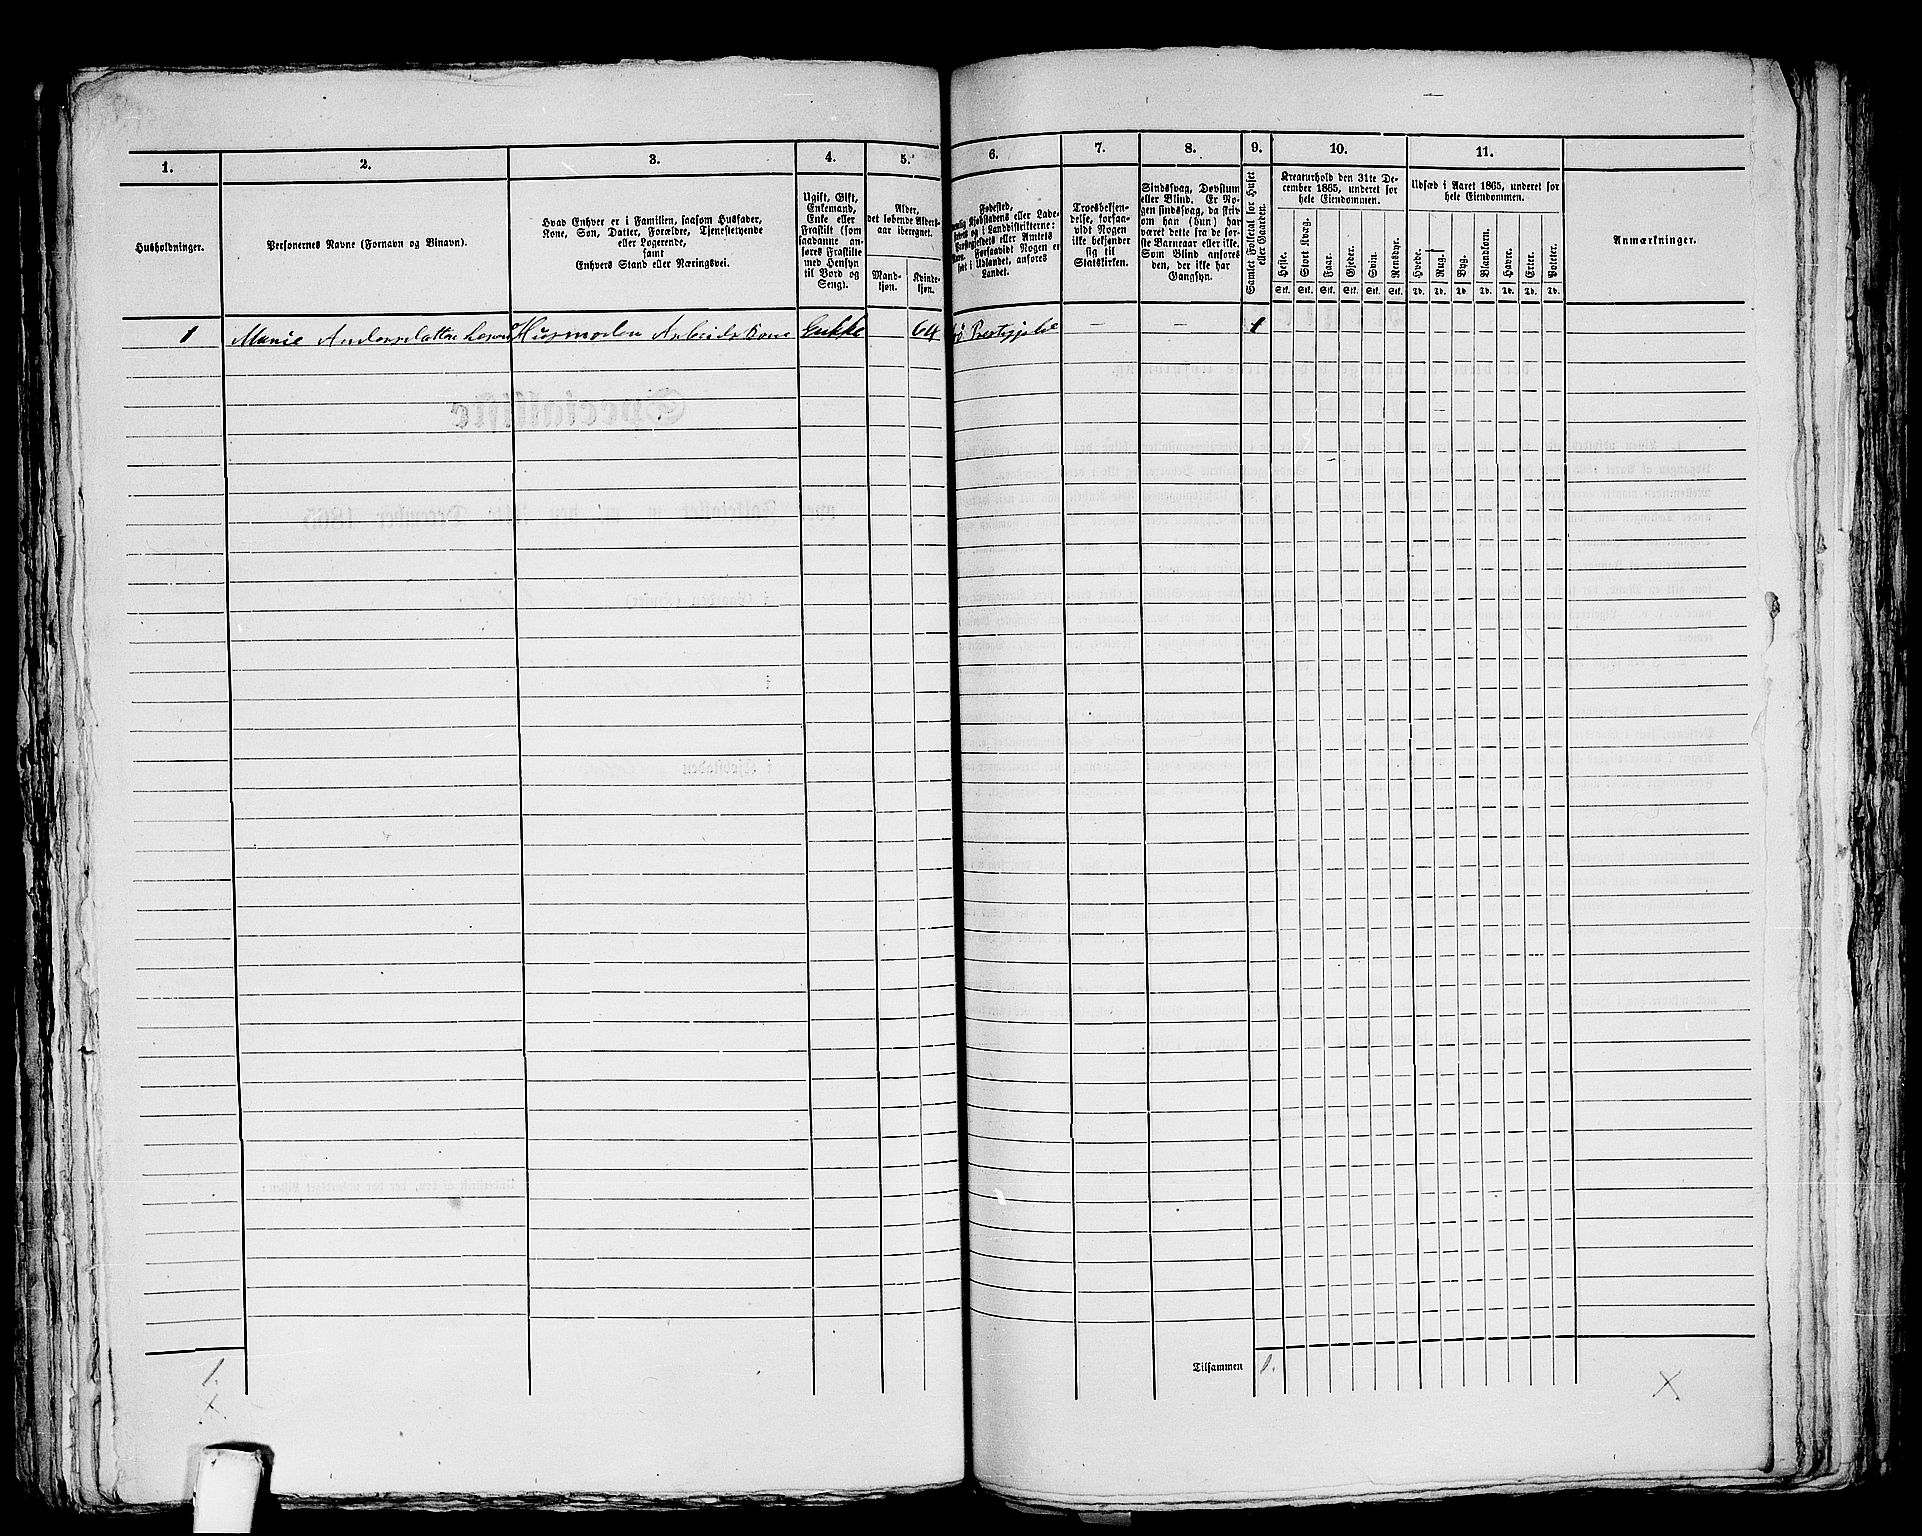 1.
2.
3.
4.
5.
6.
7.
8.
9.
10.
11.
Husholdninger.
Personernes Navne (Fornavn og Binavn).
Hvad Enhver er i Familien, saasom Husfader,
Kone, Søn, Datter, Forældre, Tjenestetyende
eller Logerende,
samt
Enhvers Stand eller Næringsvei.
Ugift, Gift,
Enkemand,
Enke eller
Fraskilt (som
saadanne an-
føres Fraskilte
med Hensyn
til Bord og
Seng).
Alder,
det løbende Alders-
aar iberegnet.
Mand-
kjøn.
Kvinde-
kjøn.
Fødested,
Kjøbstadens eller Lade-
og i Landdistrikterne:
eller Amtets
Forsaavidt Nogen er
født i Udlandet, anføres
Landet.
Troesbekjen-
delse, forsaa-
vidt Nogen
ikke bekjender
sig til
Statskirken.
Sindssvag, Døvstum
eller Blind. Er No-
gen sindssvag, da skriv
om han (hun) har
været dette fra de før-
ste Barneaar eller ikke.
Som Blind anføres
den, der ikke har
Gangsyn.
Samlet Folketal for Huset
eller Gaarden.
Kreaturhold den 31te De-
cember 1865, underet for
hele Eiendommen.
Heste.
Stort Kvæg.
Faar.
Gjeder.
Svin.
Rensdyr.
Stk. Stk. Stk. Stk. Stk. Stk.
Udsæd i Aaret 1865, underet for
hele Eiendommen.
Hvede.
Rug.
Byg.
Blandkorn.
Havre.
Erter.
Poteter.
Td. Td. Td. Td. Td. Td. Td.
Anmærkninger.
1 Marie Andersdatter Husmoder Enkke 64 — — 1
Tilsammen 1.
1.
X
X